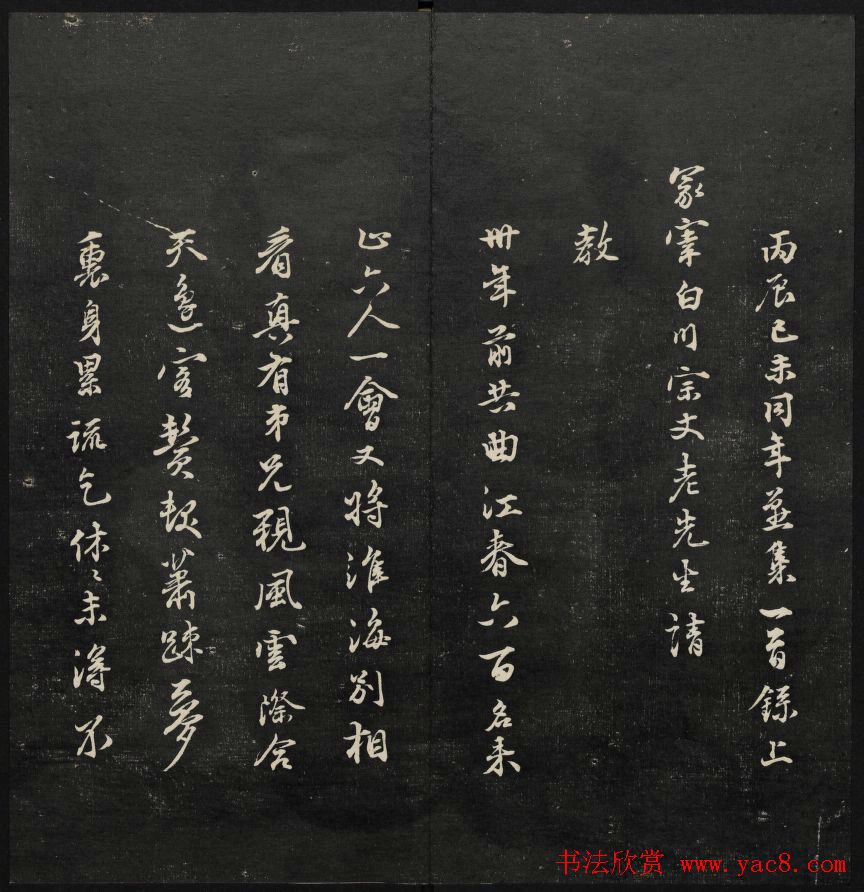 丙辰己未同年並集一首録上
冢宰白川宗丈老先生請
教
卅年前共曲江春六百名来
止六人一會又將淮海别相
看真有弟兄親風雲際合
天邊客鬢髮蕭踈夢
裏身累疏乞休〻未得不
书法欣赏 www.yac8.com